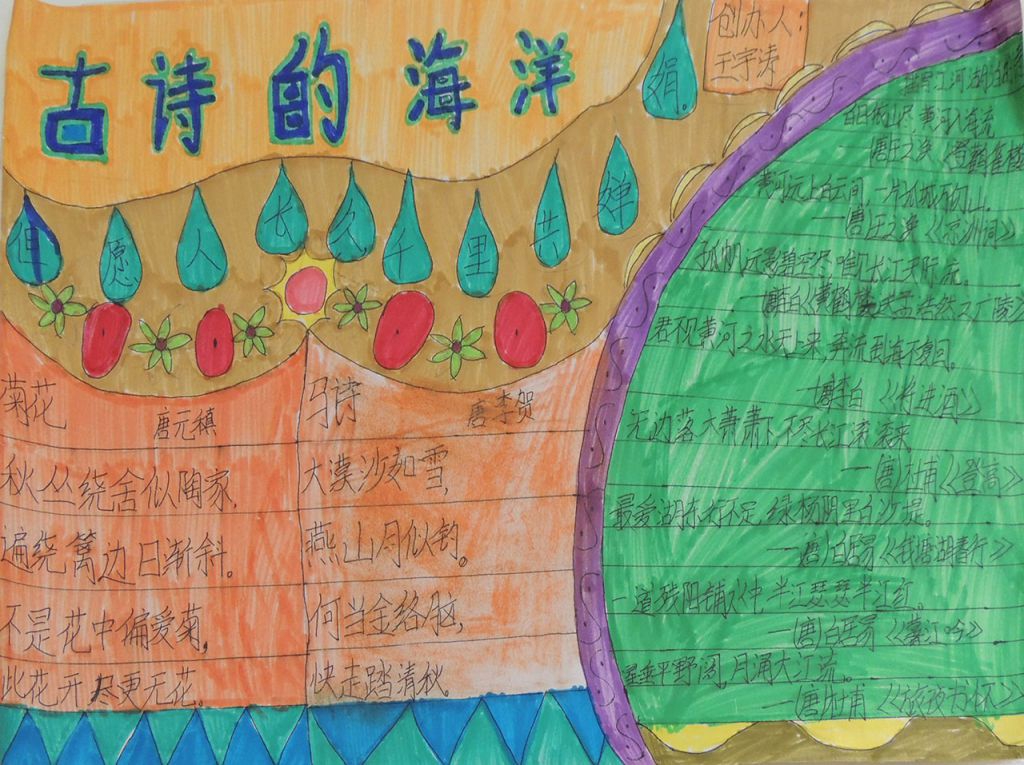 古诗的海洋
创办人:
王宇涛
但愿人长久千里共婵娟。
菊花
唐元稹
秋丛绕舍似陶家,
遍绕篱边日渐斜。
不是花中偏爱菊,
此花开尽更无花。
马诗
唐李贺
大漠沙如雪,
燕山月似钩。
何当金络脑,
快走踏清秋。
白日依山尽,黄河入海流
—唐王之涣《登鹳雀楼
黄河远上白云间,一片孤城万仞山。
—唐王之涣《凉州词》
孤帆远影碧空尽,唯见长江天际流
君不见黄河之水天上来,奔流到海不复回。
—唐李白《将进酒》
无边落木萧萧下不尽长江滚滚来
—唐杜甫《登高》
最爱湖东行不足,绿杨阴里白沙堤。
—唐白居易《钱塘湖春行》
一道残阳铺水中半江瑟瑟半江红。
—唐白居易《暮江吟》
星垂平野阔,月涌大江流。
—唐杜甫《旅夜书怀》